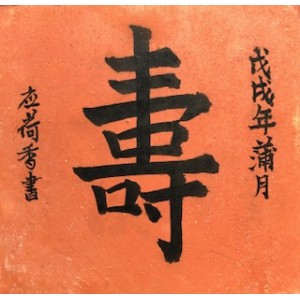 戊戌年蒲月
壽
应荷香書